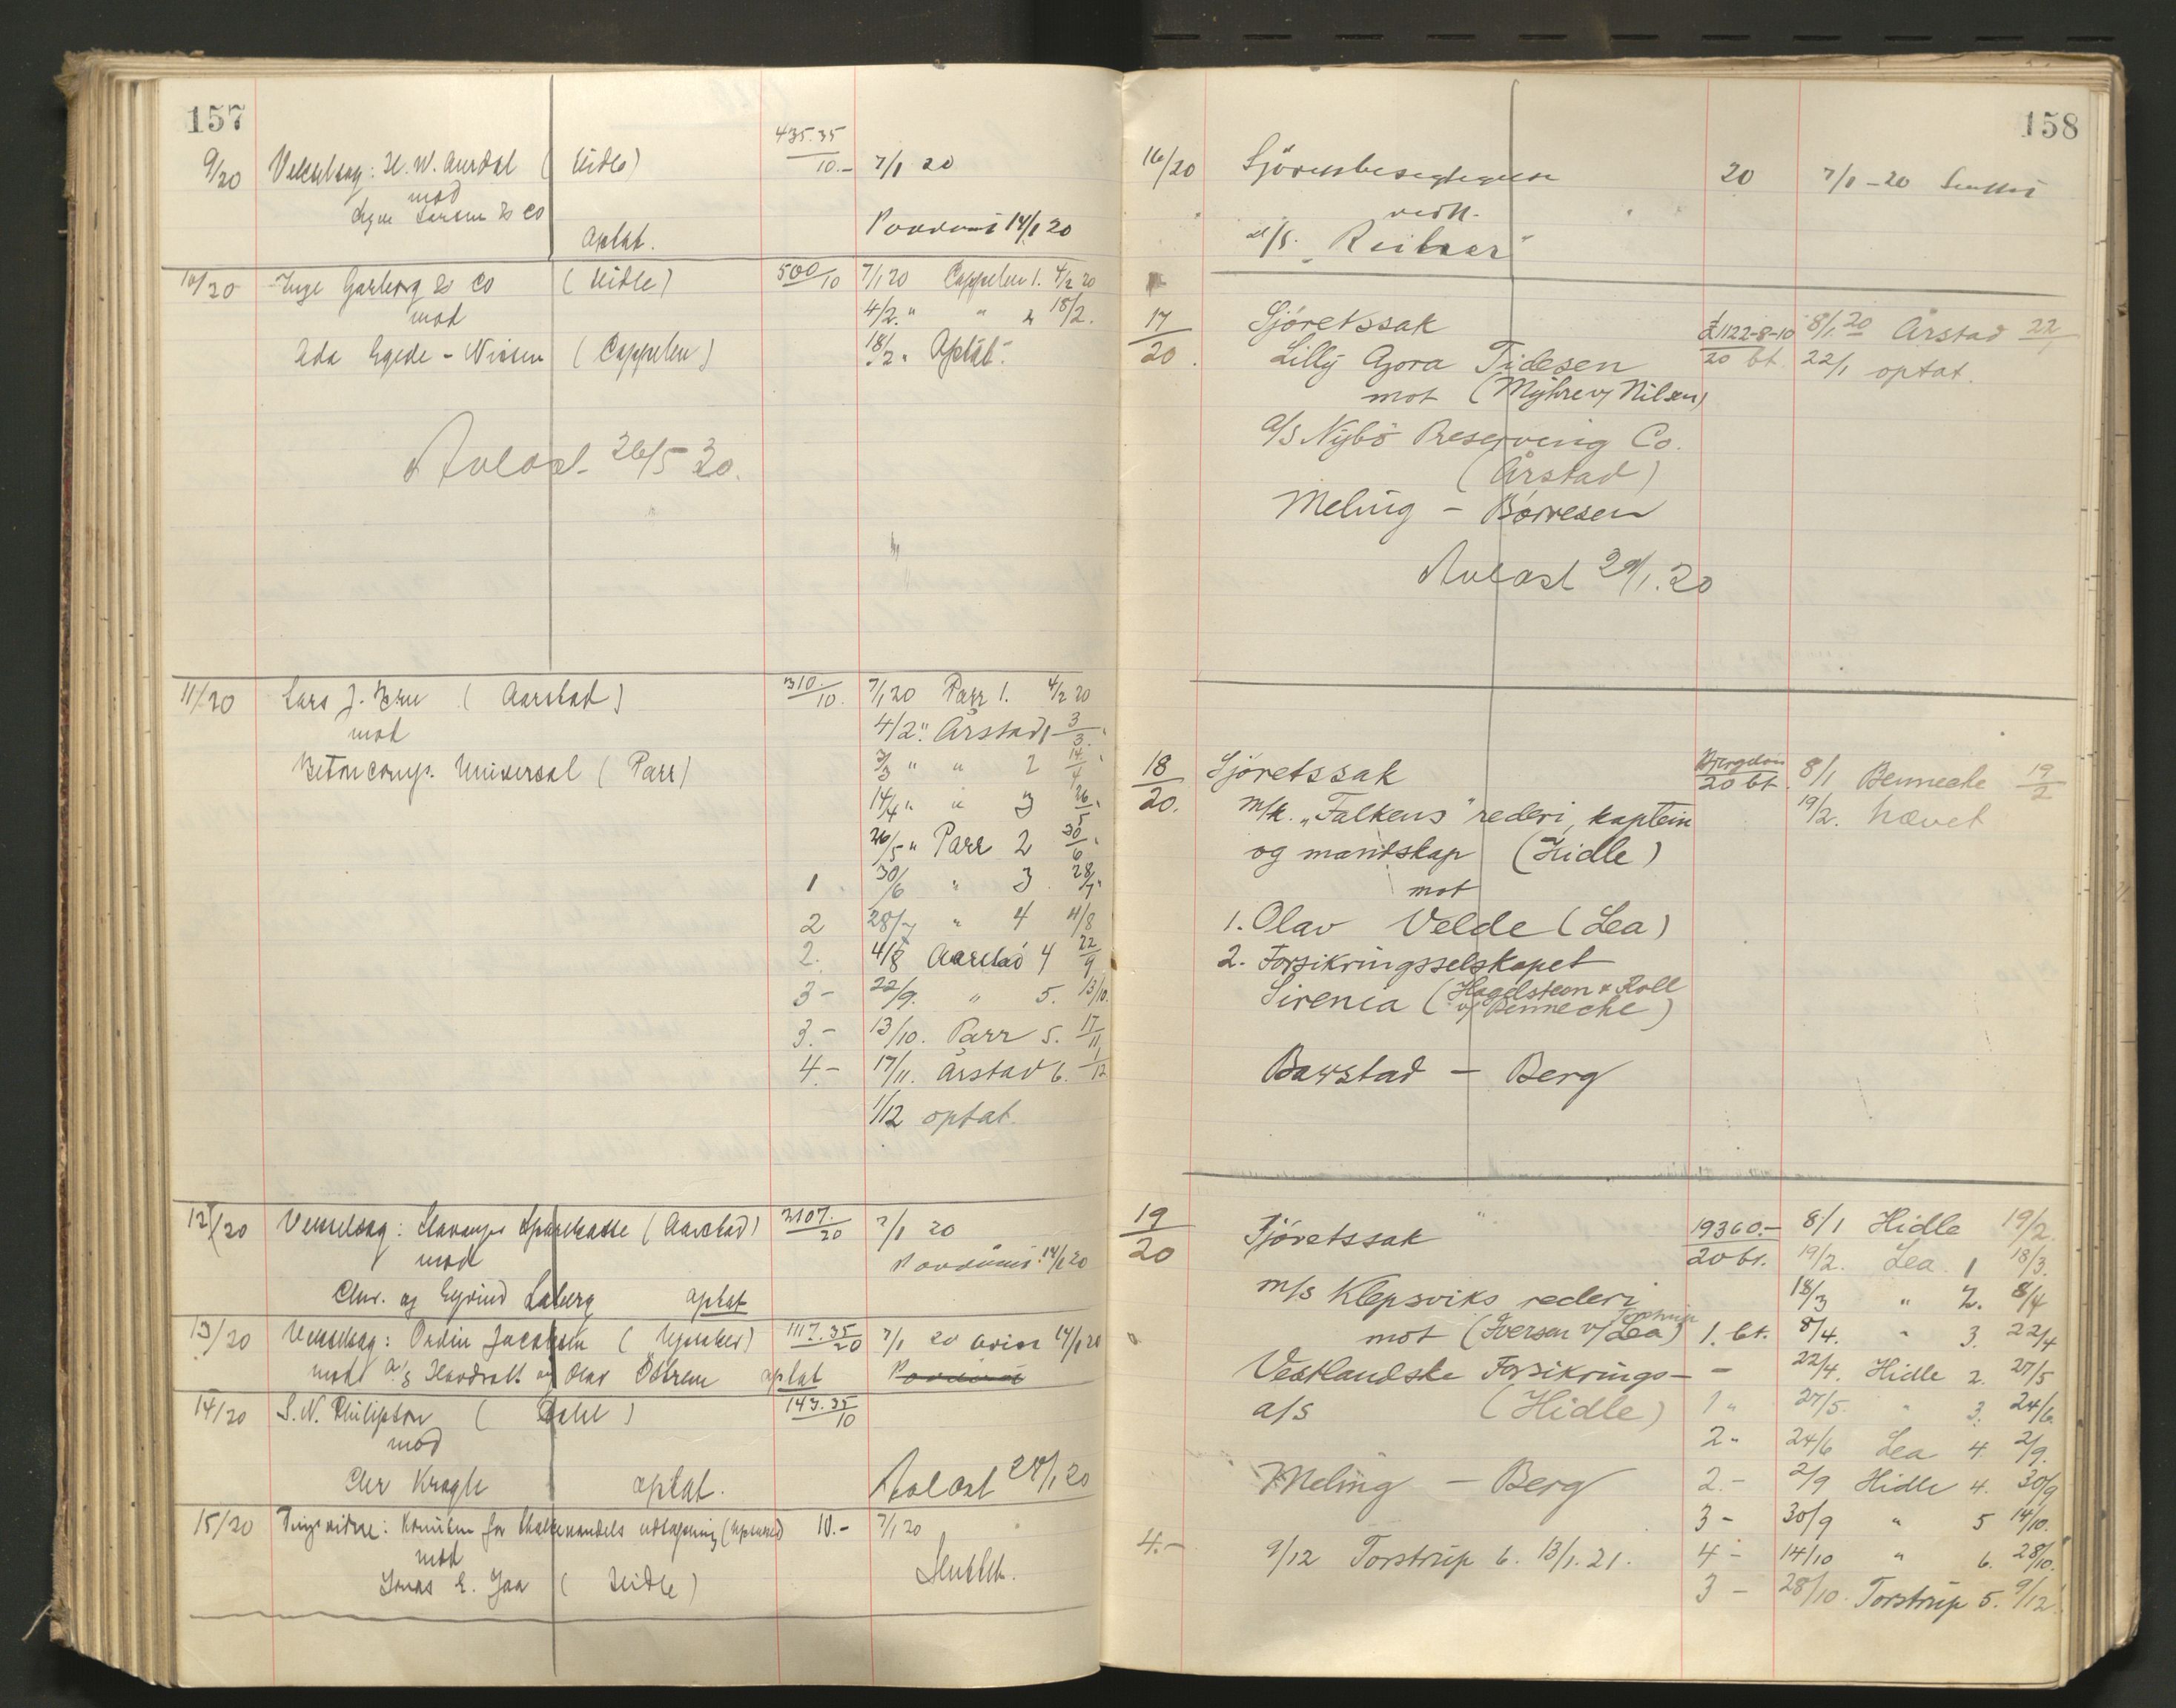 157
435.35
9/20 Vekselsag: H. W. Aurdal (Hidle) 10.- 7/1 20
mod
Larsen & Co
optat. 14/1 20
10/20 Inge Garborg & Co (Hidle) 500/10 7/1 20 Cappelen 1. 4/2 20
mod 4/2 " " 2 18/2.
Ada Egede-Nissen (Cappelen) 18/2 " Optat.
Avlast 26/5 20.
11/20 Lars J. (Aarstad) 310./10. 7/1 20 Parr 1. 4/2 20
mod 4/2 " Årstad 1 3/3. "
Betoncomp. Universal (Parr) 3/3 " " 2 14/4 "
14/4 " " 3 26/5 "
26/5 " Parr 2 30/6 "
1 30/6 " 3 28/7 "
2 28/7 " 4 4/8
2. 4/8 Aarstad 4 22/9
3- 22/9. " 5. 13/10.
3.- 13/10. Parr 5. 17/11
4.- 17/11. Årstad 6. 1/12
1/12 optat.
12/20 Vekselsag: Stavanger Sparekasse (Aarstad) 2107./20 7/1 20
mod 14/1 20
Chr. og Eyvind Laberg optat
13/20 Vekselsag: Ordin Jacobsen 1117.35/20 7/1 20 14/1 20
mod A/S og Olav Østrem optat
14/20 S. N. Philipson (Dahl) 143.35/10
mod
Chr Kragh optat. Avlast 20
15/20 Tingsvidne: for 10.- 7/1 20
mod
Jonas E. Jaa (Hidle) Sluttet.
158
16/20 Sjørettsbesigtigelse 20 7/1 - 20 Sluttet
vedk.
d/s.
17/20. Sjøretssak £1122-8-10/20 bt. 8/1 20 Årstad 22/1
Lilly Agora Tidesen 22/1 optat.
mot (Myhre v/ Nilsen)
a/s Nybö Preserving Co.
(Årstad)
Meling - Børresen
Avlast 29/1. 20
18/20. Sjøretssak Bjergeløn/20 bt. 8/1 Bennecke 19/2
m/k. „Falkens" rederi, kaptein 19/2. hævet
og mandskap (Hidle)
mot
1. Olav Velde (Lea)
2. Forsikringsselskapet
Sirenia (Hagelsteen & Roll
v/ Bennecke)
Bawstad - Berg
19/20 Sjøretssak 19360.-/20 bt. 8/1 Hidle 19/2.
19/2. Lea 1 18/3.
m/s Klepsviks rederi 18/3 " 2. 8/4
mot (Iversen v/ Lea) 1. bt. 8/4. " 3. 22/4
Vestlandske Forsikrings- - 22/4. Hidle 2. 27/5
a/s (Hidle) 1 " 27/5. " 3. 24/6.
2 " 24/6 Lea 4 2/9.
Meling - Berg 2.- 2/9 Hidle 4. 30/9
3 - 30/9 " 5 14/10.
4.- 9/12 Torstrup 6. 13/1. 21. 4 - 14/10 " 6. 28/10.
3 - 28/10. Torstrup 5. 9/12.